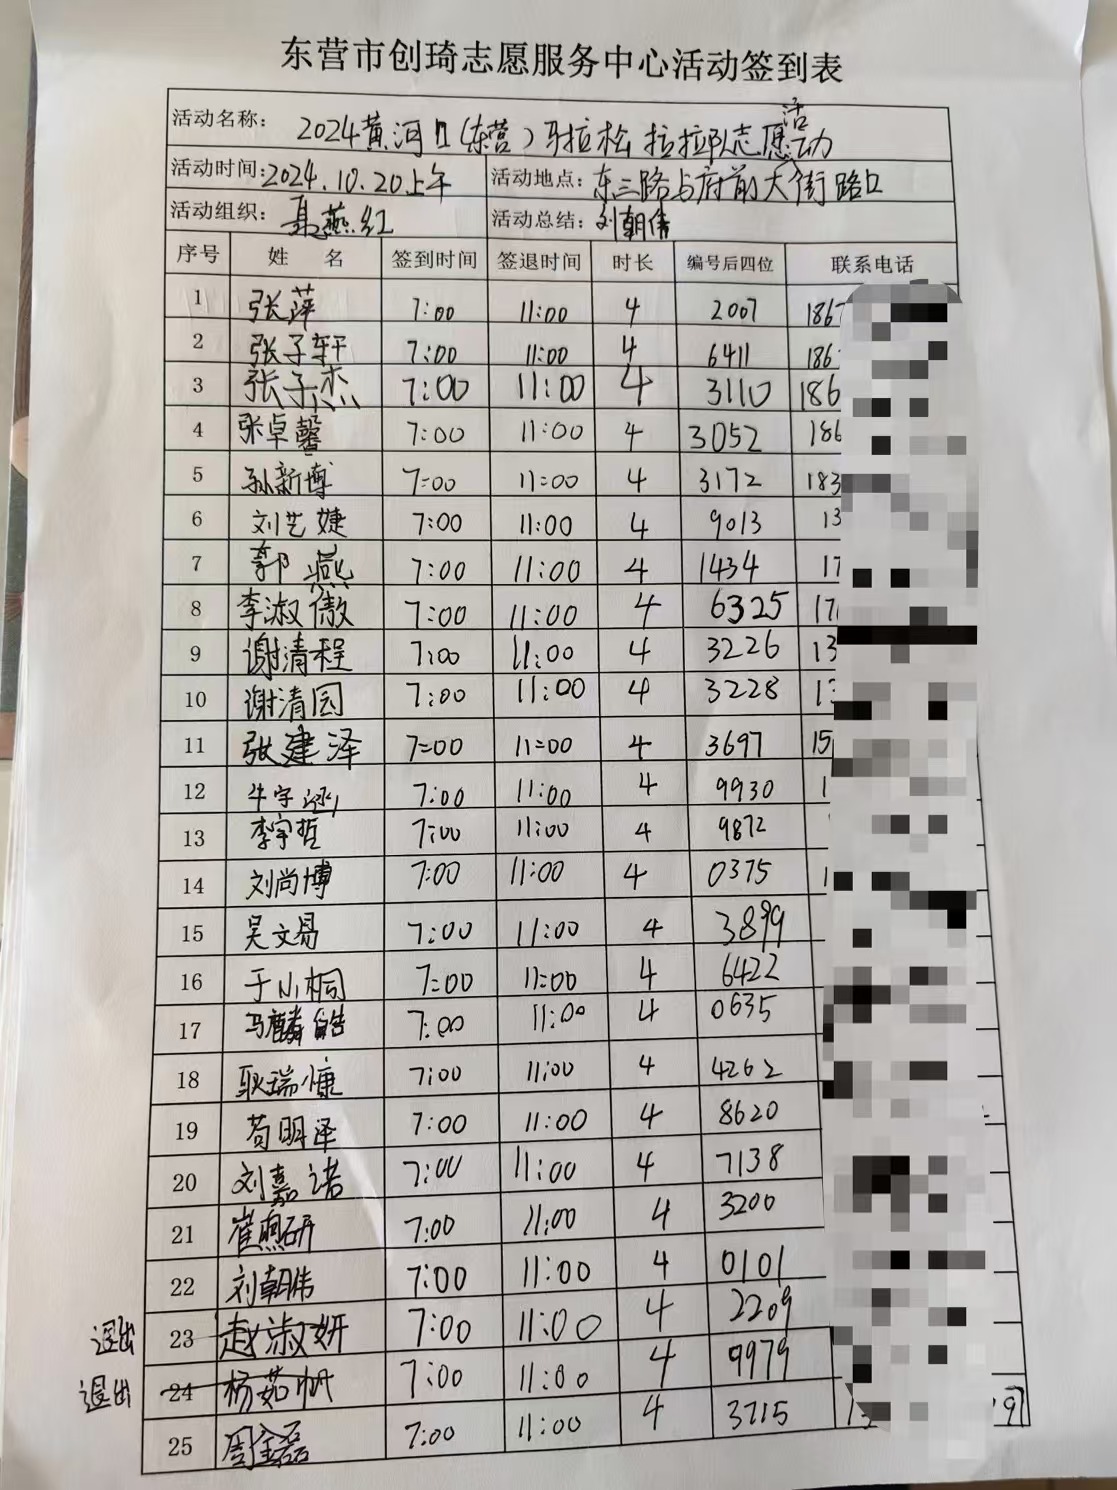 东营市创琦志愿服务中心活动签到表
活动名称: 2024黄河口(东营)马拉松 拉拉队志愿活动
活动时间:2024.10.20上午 活动地点: 东三路与府前大街路口
活动组织: 聂燕红 活动总结: 刘朝伟
序号 姓 名 签到时间 签退时间 时长 编号后四位 联系电话
1 张萍 7:00 11:00 4 2007 186
2 张子轩 7:00 11:00 4 6411 186
3 张子杰 7:00 11:00 4 3110 186
4 张卓馨 7:00 11:00 4 3052 186
5 孙新博 7:00 11:00 4 3172 183
6 刘艺婕 7:00 11:00 4 9013 13
7 郭燕 7:00 11:00 4 1434 17
8 李淑傲 7:00 11:00 4 6325 17
9 谢清程 7:00 11:00 4 3226 13
10 谢清园 7:00 11:00 4 3228 13
11 张建泽 7:00 11:00 4 3697 15
12 牛宇涵 7:00 11:00 4 9930 1
13 李宇哲 7:00 11:00 4 9872
14 刘尚博 7:00 11:00 4 0375 1
15 吴文易 7:00 11:00 4 3899
16 于小桐 7:00 11:00 4 6422
17 马麟皓 7:00 11:00 4 0635
18 耿瑞慷 7:00 11:00 4 4262
19 苟明泽 7:00 11:00 4 8620
20 刘嘉诺 7:00 11:00 4 7138
21 崔煦研 7:00 11:00 4 3200
22 刘朝伟 7:00 11:00 4 0101
退出 23 赵淑妍 7:00 11:00 4 2209
退出 24 杨茹帆 7:00 11:00 4 9979
25 周鑫磊 7:00 11:00 4 3715 13 91